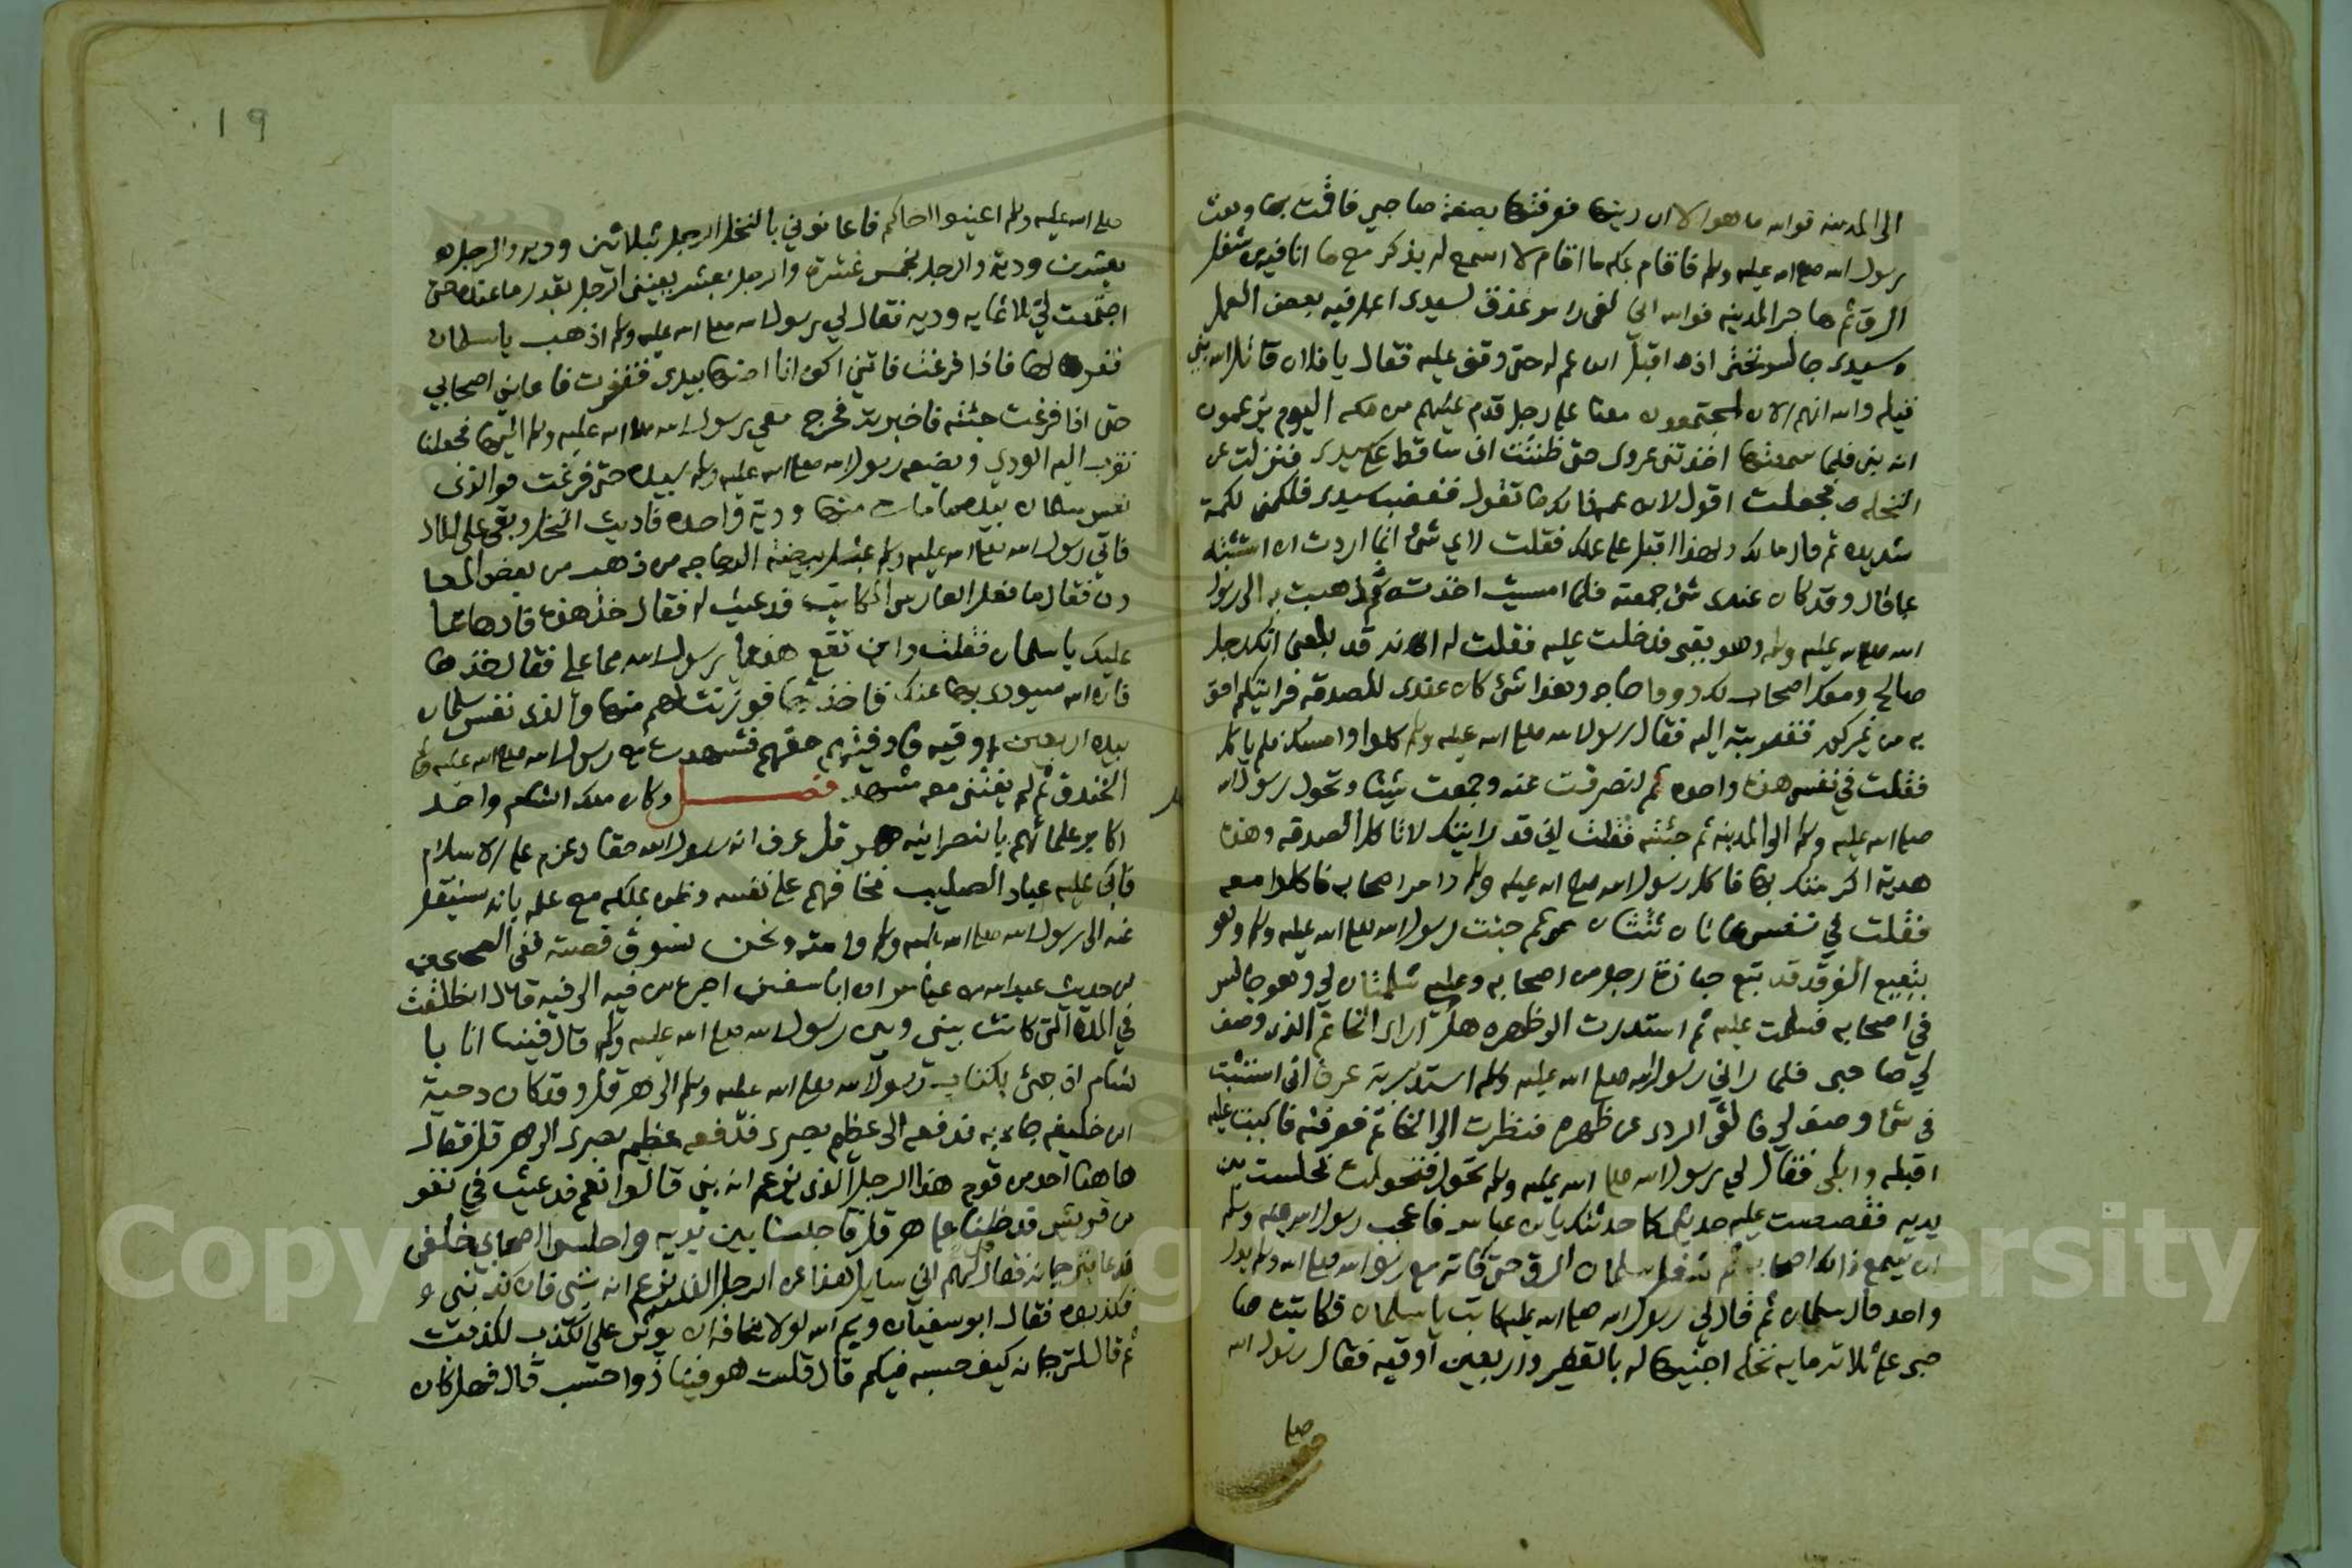 الى المدينه فوالله ما هو الا ان رايتها فعرفتها بصفة صاحبي فاقمت بها وبعث
رسول الله صلى الله عليه وسلم فاقام بمكه ما اقام لا اسمع له بذكر مع ما انا فيه من شغل
الرق ثم هاجر الى المدينه فوالله اني لفي راس عذق لسيدي اعمل فيه بعض العمل
وسيدي جالس تحتي اذ اقبل ابن عم له حتى وقف عليه فقال يا فلان قاتل الله بني
قيله والله انهم الان لمجتمعون معنا على رجل قدم عليهم من مكه اليوم يزعمون
انه نبي فلما سمعتها اخذتني عروى حتى ظننت اني ساقط على سيدي فنزلت عن
النخله فجعلت اقول لابن عمه ماذا تقول فغضب سيدي فلكمني لكمة
شديده ثم قال مالك ولهذا اقبل على عملك فقلت لا شئ انما اردت ان استثبته
عما قال وقد كان عندي شئ جمعته فلما امسيت اخذته ثم ذهبت به الى رسول
الله صلى الله عليه وسلم وهو بقبى فدخلت عليه فقلت له انه قد بلغني انك رجل
صالح ومعك اصحاب لك ذووا حاجه وهذا شئ كان عندي للصدقه فرايتكم احق
به من غيركم فقربته اليه فقال رسول الله صلى الله عليه وسلم كلوا وامسك فلم ياكل
فقلت في نفسي هذه واحده ثم انصرفت عنه وجمعت شيئا وتحول رسول الله
صلى الله عليه وسلم الى المدينه ثم جئته فقلت اني قد رايتك لا تاكل الصدقه وهذه
هدية اكرمتك بها فاكل رسول الله صلى الله عليه وسلم وامر اصحابه فاكلوا معه
فقلت في نفسي هاتان ثنتان ثم جئت رسول الله صلى الله عليه وسلم وهو
ببقيع الغرقد قد تبع جنازة رجل من اصحابه وعليه شملتان لي وهو جالس
في اصحابه فسلمت عليه ثم استدرت الى ظهره هل ارى الخاتم الذي وصف
لي صاحبي فلما راني رسول الله صلى الله عليه وسلم استدبرته عرف اني استثبت
في شئ وصف لي فالقى الردى عن ظهره فنظرت الى الخاتم فعرفته فاكببت عليه
اقبله وابكى فقال لي رسول الله صلى الله عليه وسلم تحول فتحولت فجلست بين
يديه فقصصت عليه حديثي كما حدثتك يا بن عباس فاعجب رسول الله صلى الله عليه وسلم
ان يسمع ذلك اصحابه ثم شغل سلمان الرق حتى فاته مع رسول الله صلى الله عليه وسلم بدر
واحد قال سلمان ثم قال لي رسول الله صلى الله عليه كاتب يا سلمان فكاتبت صا
حبي على ثلاثمايه نخله احييها له بالفقير واربعين اوقيه فقال رسول الله
صلى
١٩
صلى الله عليه وسلم اعينوا اخاكم فاعانوني بالنخل الرجل بثلاثين وديه والرجل
بعشرين ودية والرجل بخمس عشرة والرجل بعشر يعينني الرجل بقدر ما عنده حتى
اجتمعت لي ثلاثمايه وديه فقال لي رسول الله صلى الله عليه وسلم اذهب يا سلمان
ففقر لها فاذا فرغت فاتني اكون انا اضعها بيدي ففقرت فاعانني اصحابي
حتى اذا فرغت جئته فاخبرته فخرج معي رسول الله صلى الله عليه وسلم اليها فجعلنا
نقرب اليه الودي ويضعه رسول الله صلى الله عليه وسلم بيده حتى فرغت فوالذي
نفس سلمان بيده ما مات منها ودية واحده فاديت النخل وبقي علي المال
فاتي رسول الله صلى الله عليه وسلم بمثل بيضة الدجاجه من ذهب من بعض المعا
دن فقال ما فعل الفارسي المكاتب فدعيت له فقال خذ هذه فادها مما
عليك يا سلمان فقلت واين تقع هذه يا رسول الله مما علي فقال خذها
فان الله سيودي بها عنك فاخذتها فوزنت لهم منها والذي نفس سلمان
بيده اربعين اوقيه فاوفيتهم حقهم فشهدت مع رسول الله صلى الله عليه وسلم
الخندق ثم لم يفتني معه مشهد فصل وكان ملك الشام واحد
اكابر علمائهم بالنصرانيه هرقل عرف انه رسول الله حقا وعزم على الاسلام
فابى عليه عباد الصليب فخافهم على نفسه وظن بملكه مع علمه بانه سينقل
عنه الى رسول الله صلى الله عليه وسلم وامته ونحن نسوق قصته ففي الصحيحين
من حديث عبد الله بن عباس ان ابا سفين اخبره من فيه الى فيه قال انطلقت
في المدة التي كانت بيني وبين رسول الله صلى الله عليه وسلم قال فبينا انا با
لشام اذ جئ بكتاب رسول الله صلى الله عليه وسلم الى هرقل وقد كان دحية
ابن خليفه جاء به فدفعه الى عظيم بصرى فدفعه عظيم بصرى الى هرقل فقال
هاهنا احد من قوم هذا الرجل الذي يزعم انه نبي قالوا نعم فدعيت في نفر
من قريش فدخلنا على هرقل فاجلسنا بين يديه واجلسوا اصحابي خلفي
فدعا بترجمانه فقال لهم اني سايل هذا عن الرجل الذي يزعم انه نبي فان كذبني
فكذبوه فقال ابو سفيان وايم الله لولا مخافة ان يوثر علي الكذب لكذبت
ثم قال لترجمانه كيف حسبه فيكم قال قلت هو فينا ذوا حسب قال فهل كان
Copyright © King Saud University